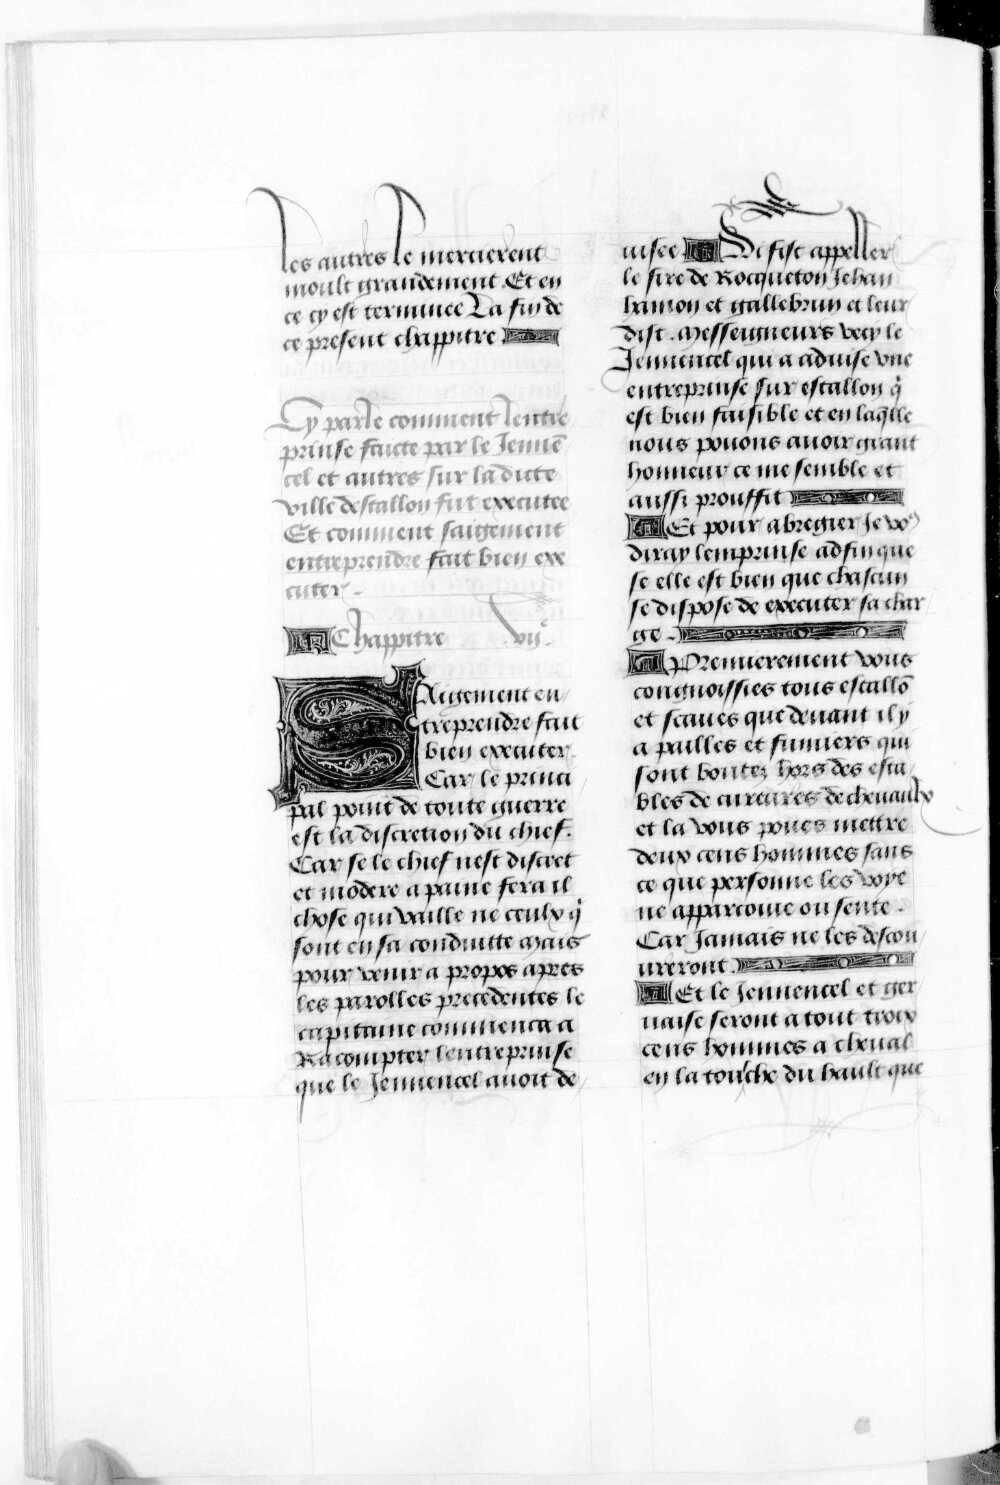 les autres le mercierent
moult grandement. Et en
ce cy est terminee La fin de
ce present chappitre
Cy parle comment lentre
prinse faicte par le Jenuē
cel et autres sur la dicte
ville descallon fut executee
Et comment saigement
entreprendre fait bien exe
cuter.
Chappitre .vij.
SAigement en
treprendre fait
bien executer.
Car le princi
pal point de toute guerre
est la discretion du chief.
Car se le chief nest discret
et modere a paine fera il
chose qui vaille ne ceulx q̄
sont en sa conduitte Mais
pour venir a propos apres
les parolles precedentes le
capitaine commenca a
Racompter lentreprinse
que le Jenuencel auoit de
uisee Si fist appeller
le sire de Rocqueton Jehan
hamon et gallebrun et leur
dist. Messeigneurs vecy le
Jenuencel qui a aduise vne
entreprinse sur escallon q̄
est bien faisible et en laq̄lle
nous pouons auoir grant
honneur ce me semble et
aussi prouffit
Et pour abregier Je voꝯ
diray lemprinse adfin que
se elle est bien que chascun
se dispose de executer sa char
ge.
Premierement vous
congnoissies tous escallō
et scaues que deuant il y
a pailles et fumiers qui
sont boutez hors des esta
bles de cureures de cheuaulx
et la vous poues mettre
deux cens hommes sans
ce que personne les voye
ne apparcoiue ou sente.
Car Jamais ne les descou
ureront.
Et le Jenuencel et ger
uaise seront a tout troix
cens hommes a cheual
en la touche du hault que